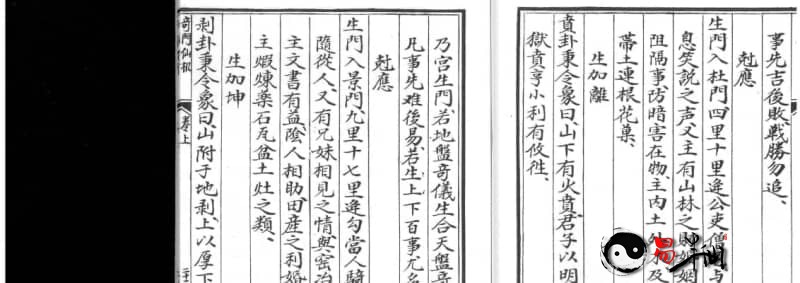 事先吉後敗、戰勝勿追、
尅應
生門入杜門、四里十里逢公吏僧
息笑說之声、又主有山林之
阻隔事、防暗害在物、主內土
帶土連根花菓、
生加離
賁卦秉令、象曰、山下有火賁、君子以明
獄、賁亨小利有攸往、
乃宮生門、若地盤奇儀生合天盤奇
凡事先難後易、若生上下百事尤名
尅應
生門入景門、九里十七里逢勾當人騎
隨從人、又有兄妹相見之情、與窑冶
主文書有益、陰人相助、田産之利、婚
主煅煉藥石瓦盆土灶之類、
生加坤
剥卦秉令、象曰、山附于地剥、上以厚下
奇門仙機
卷上
易